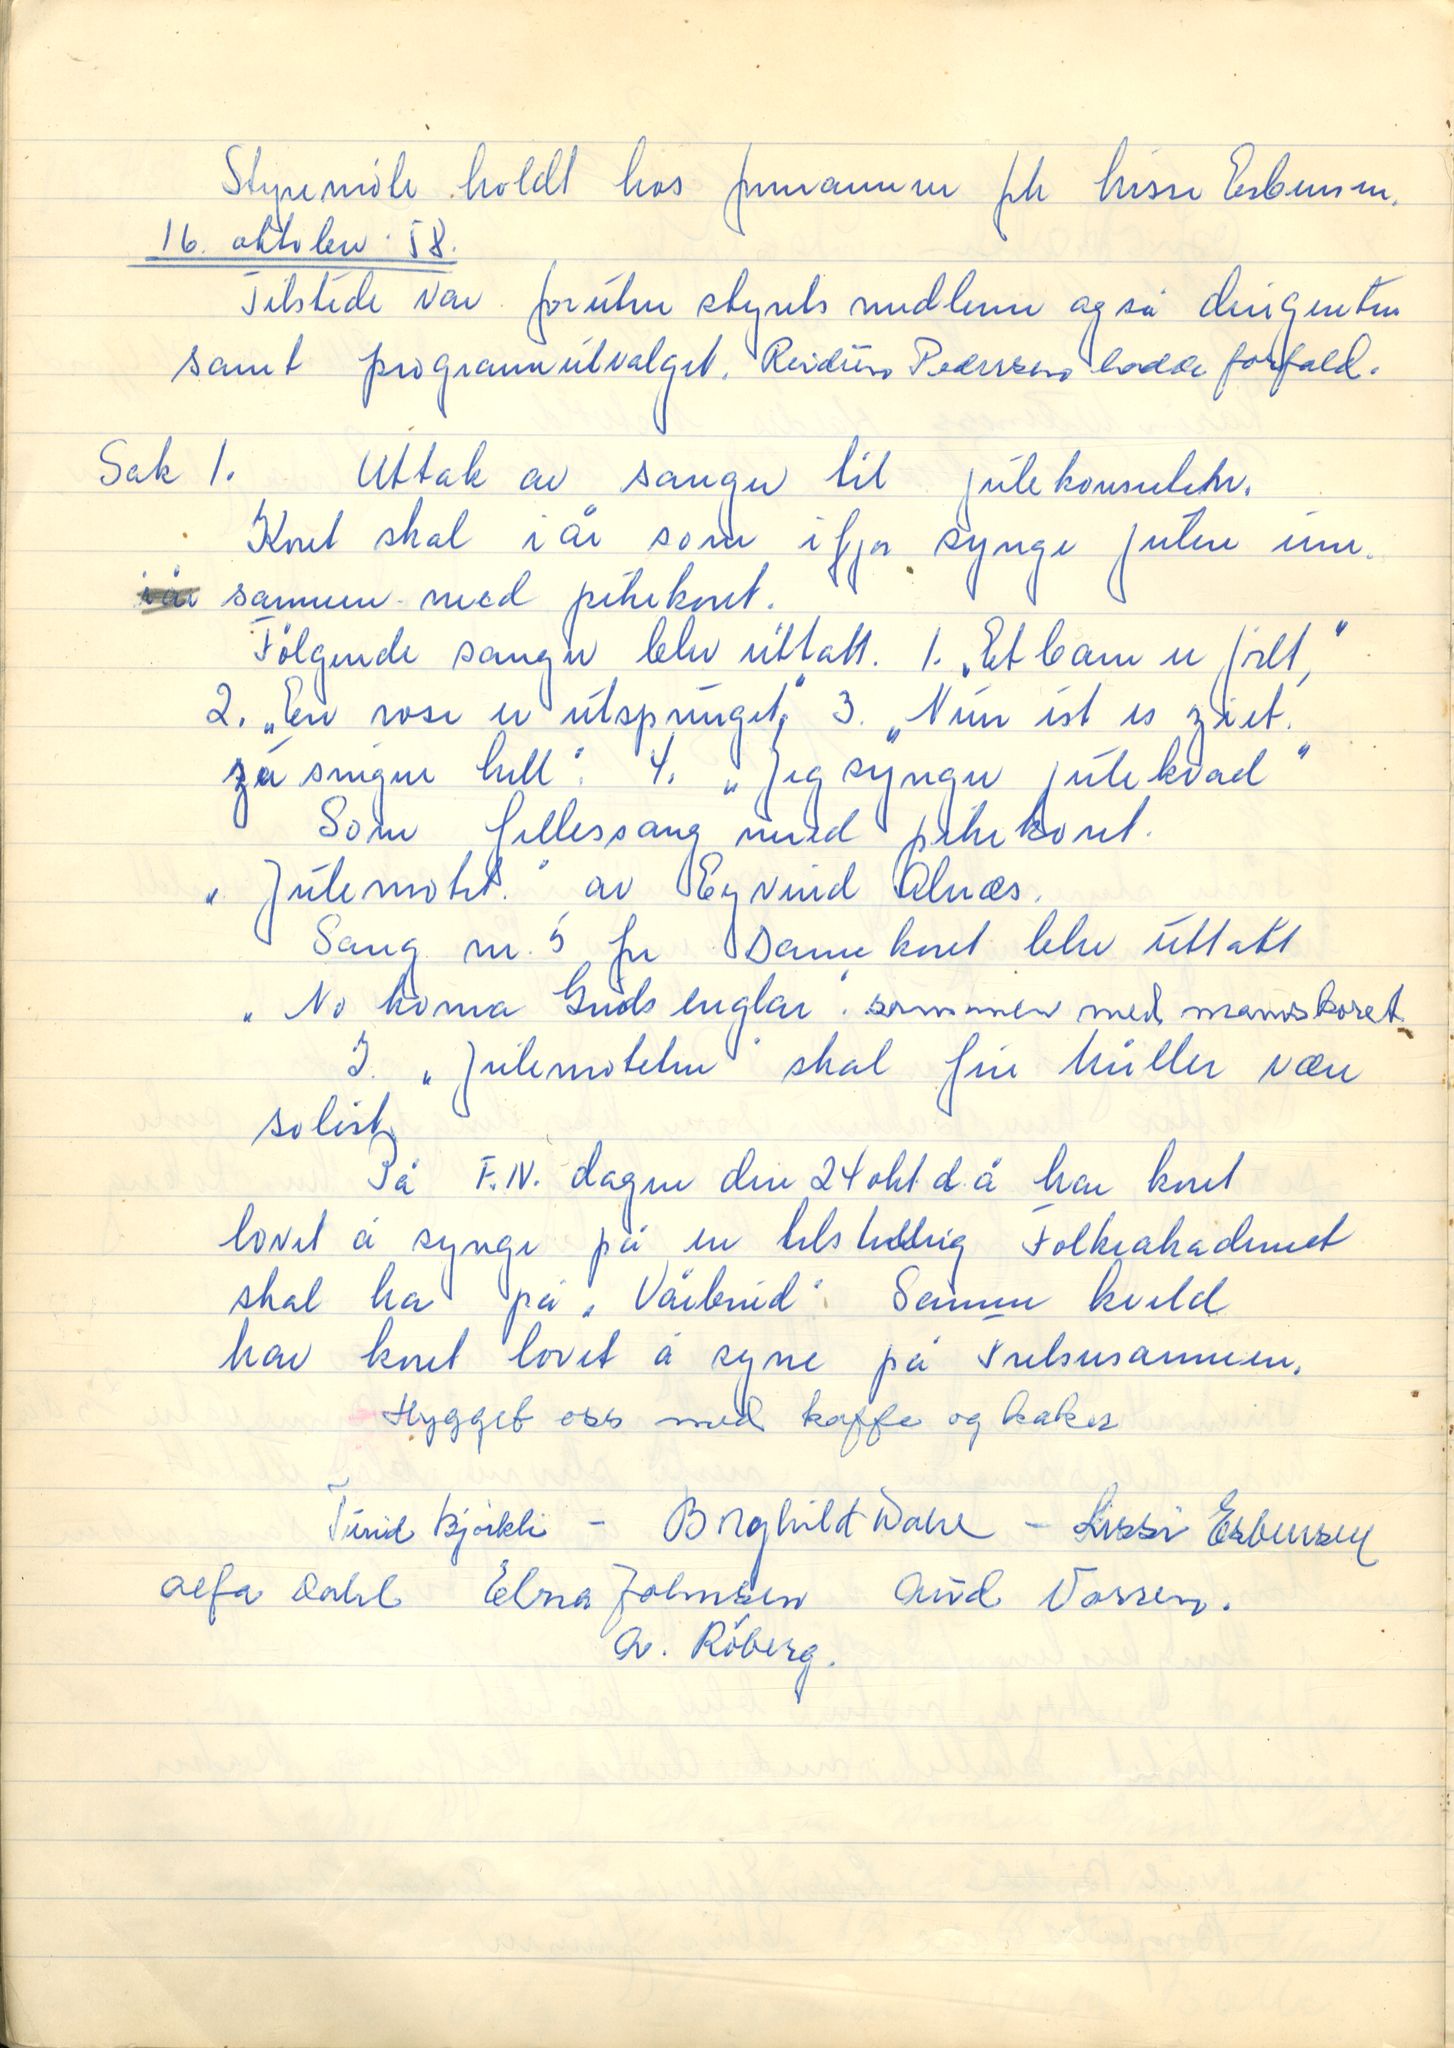 Styremöte holdt hos formannen frk Lissi Esbensen.
16. oktober 58.
Tilstede var foruten styrets medlemer også dirigenten
samt programutvalget. Reidun Pedersen hadde forfald.
Sak 1. Uttak av sanger til julekonserten.
Koret skal i år som ifjor synge julen inn.
sammen med pikekoret.
Fölgende sanger blev uttatt. 1. „Et barn er födt,"
2. „En rose er utsprunget," 3. „Nun ist es ziet.
zu singen hell". 4. „Jeg synger julekvad"
Som fellessang med pikekoret.
„Julemotet." av Eyvind Alnæs.
Sang nr. 5 for Damekoret blev uttatt
„No koma Guds englar". sammen med mannskoret
I „Julemoteten" skal Müller være
solist.
På F.N. dagen den 24 okt d.å har koret
lovet å synge på en tilstelling Folkeakademiet
skal ha på „Vårbrud". Samme kveld
har koret lovet å syne på Frelsesarmeen.
Hygget oss med kaffe og kaker
Turid Bjørkli - Borghild Dahl - Lissi Esbensen
Alfa Dahl Elna Johnsen Aud Vassen.
A. Röberg.